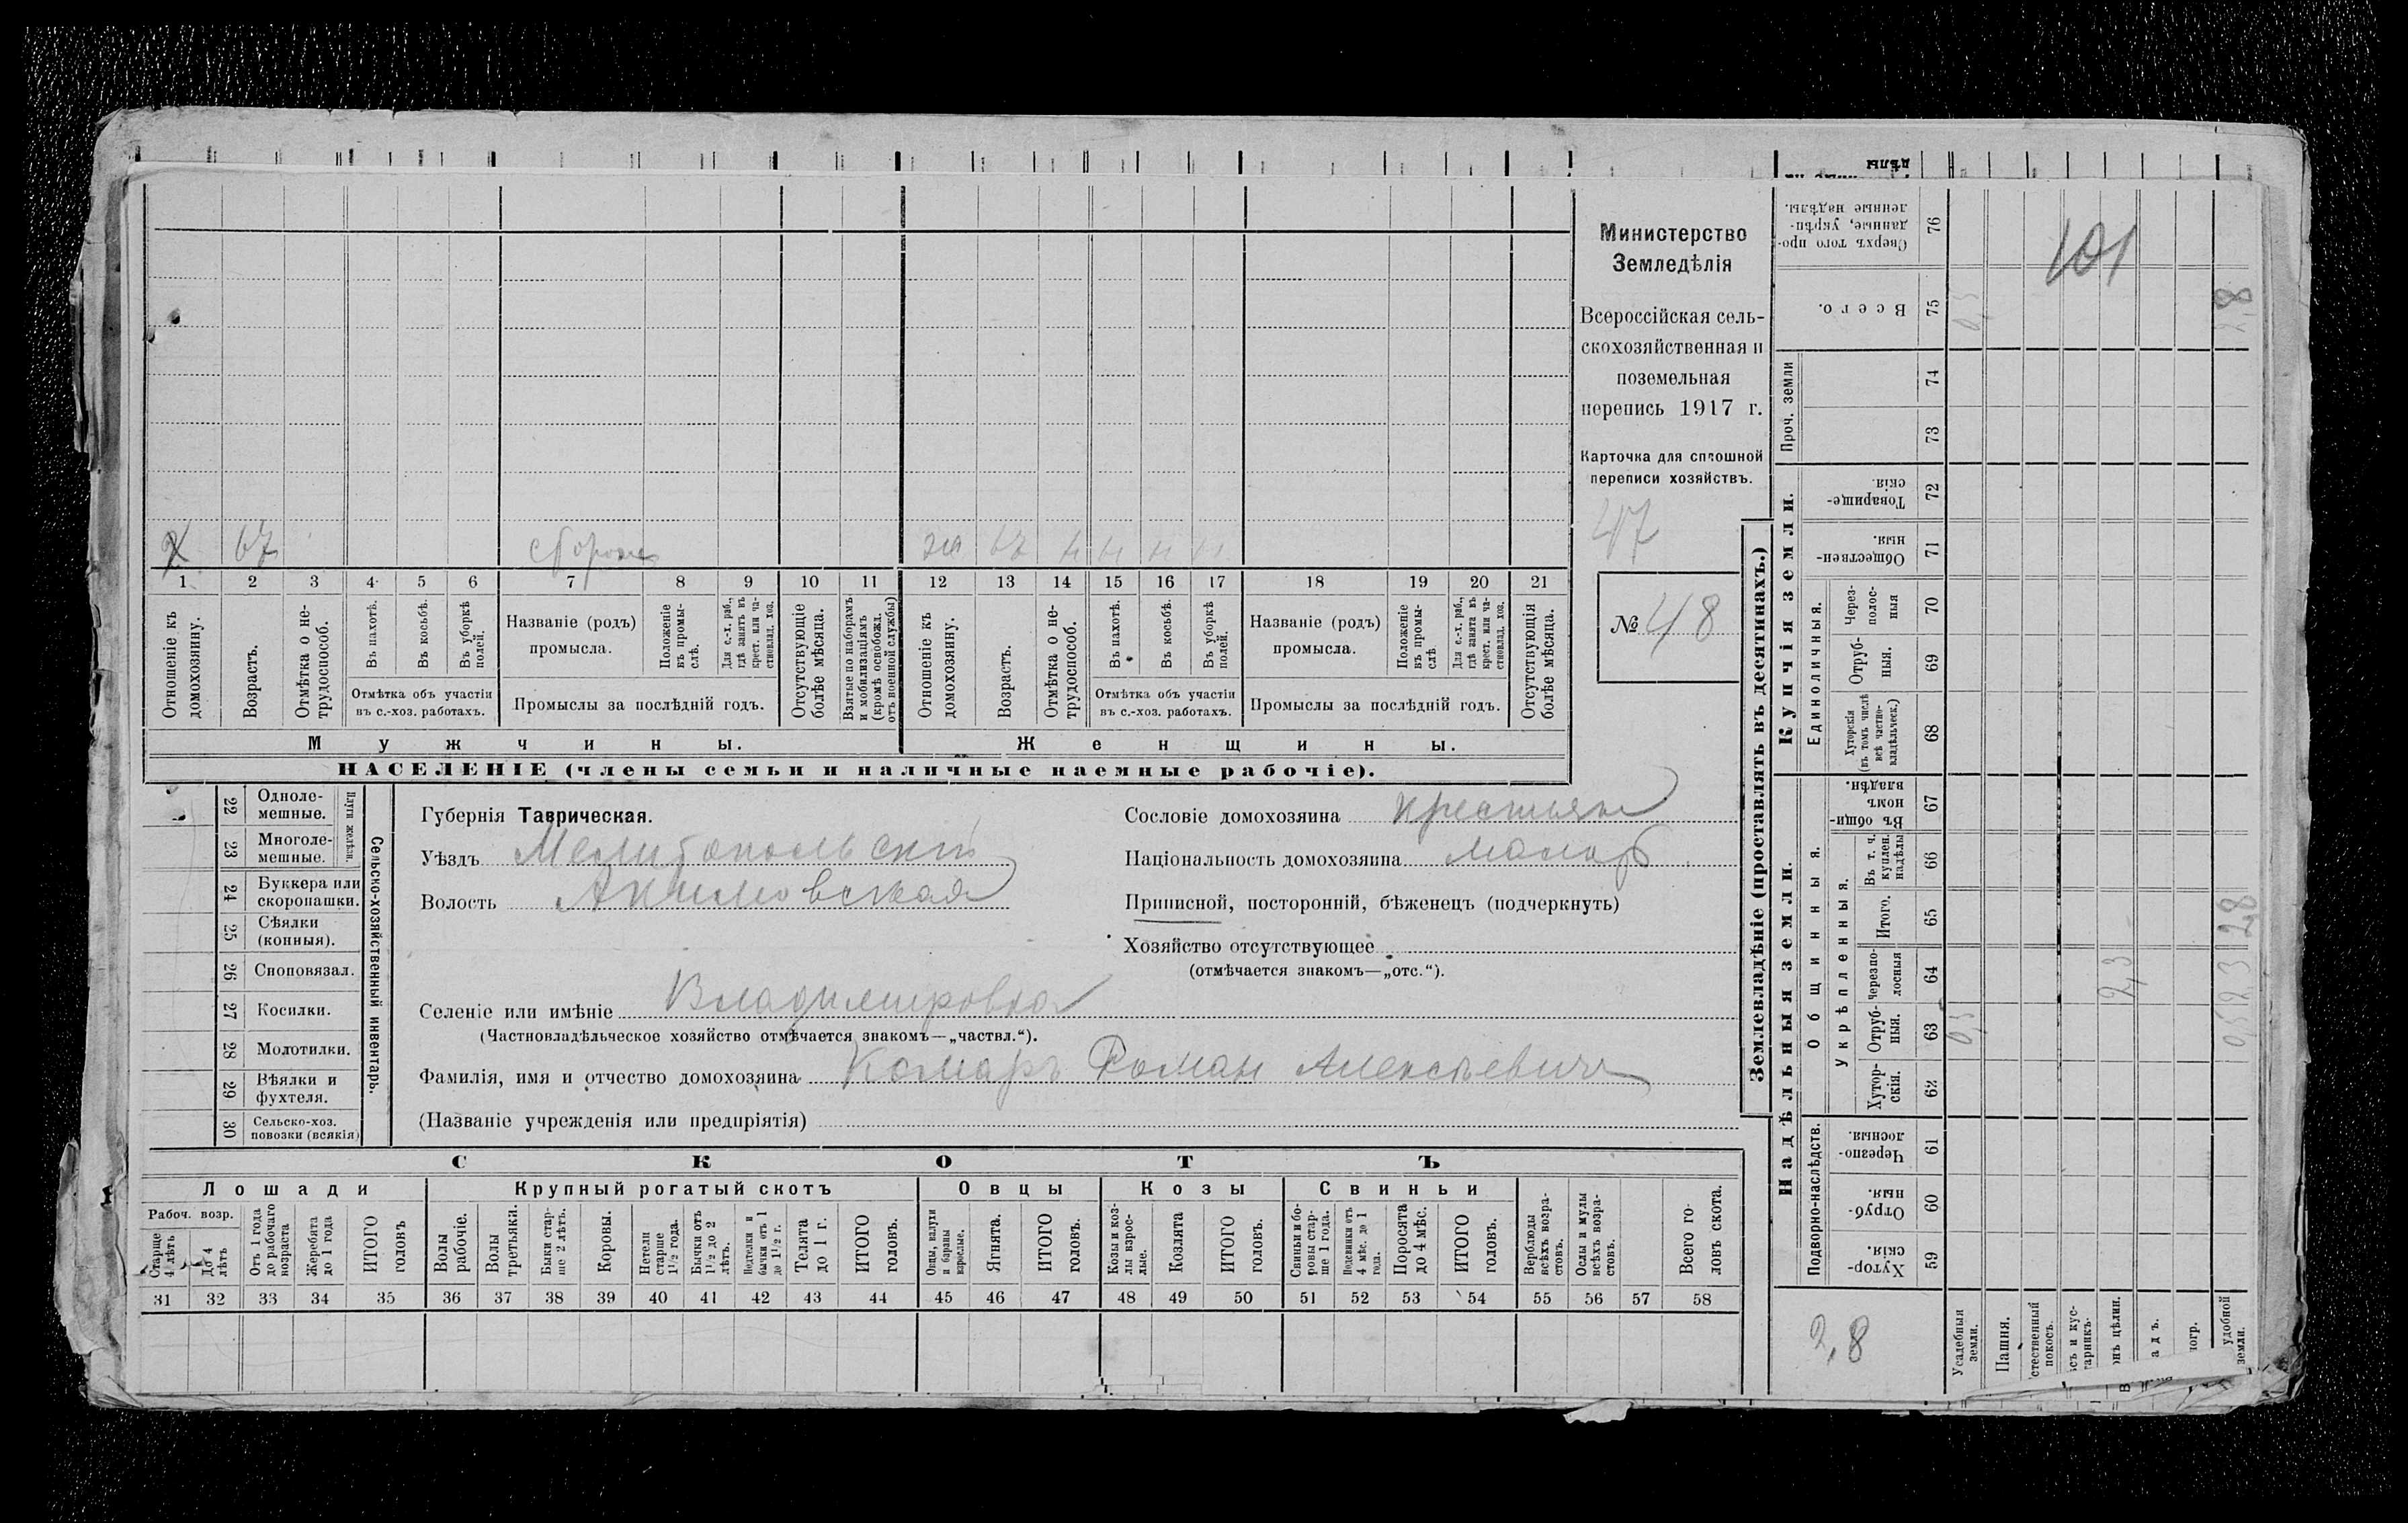 Министерство
Земледѣлія
Всероссійская сель-
скохозяйственная и
поземельная
перепись 1917 г.
Карточка для сплошной
переписи хозяйствъ.
47
№ 48
х 67 сторож жа 67 н н н н
1 2 3 4 5 6 7 8 9 10 11 12 13 14 15 16 17 18 19 20 21
Отношеніе къ домохозяину.
Возрастъ.
Отмѣтка о не-трудоспособ.
Въ пахотѣ.
Въ косьбѣ.
Въ уборкѣ полей.
Отмѣтка объ участіи
въ с.-хоз. работахъ.
Названіе (родъ)
промысла.
Положеніе въ промы-слѣ.
Для с.-х. раб., гдѣ занятъ въ крест. или ча-стновлад. хоз.
Промыслы за послѣдній годъ.
Отсутствующіе болѣе мѣсяца.
Взятые по наборамъ и мобилизаціямъ (кромѣ освобожд. отъ военной службы)
Отношеніе къ домохозяину.
Возрастъ.
Отмѣтка о не-трудоспособ.
Въ пахотѣ.
Въ косьбѣ.
Въ уборкѣ полей.
Отмѣтка объ участіи
въ с.-хоз. работахъ.
Названіе (родъ)
промысла.
Положеніе въ промы-слѣ
Для с.-х. раб., гдѣ занята въ крест. или ча-стновлад. хоз.
Промыслы за послѣдній годъ.
Отсутствующія болѣе мѣсяца.
Мужчины.
Женщины.
НАСЕЛЕНІЕ (члены семьи и наличные наемные рабочіе).
22 Одноле-мешные.
23 Многоле-мешные.
Плуги желѣзн.
24 Буккера или скоропашки.
25 Сѣялки (конныя).
26 Сноповязал.
27 Косилки.
28 Молотилки.
29 Вѣялки и фухтеля.
30 Сельско-хоз. повозки (всякія)
Сельско-хозяйственный инвентарь.
Губернія Таврическая.
Уѣздъ Мелитопольскій
Волость Акимовская
Сословіе домохозяина крестьян
Національность домохозяина малор
Приписной, посторонній, бѣженецъ (подчеркнуть)
Хозяйство отсутствующее
(отмѣчается знакомъ—„отс.“).
Селеніе или имѣніе Владимировка
(Частновладѣльческое хозяйство отмѣчается знакомъ—„частвл.“).
Фамилія, имя и отчество домохозяина Комаръ Роман Алексѣевич
(Названіе учрежденія или предпріятія)
СКОТЪ
Лошади
Крупный рогатый скотъ
Овцы
Козы
Свиньи
Рабоч. возр.
Старще 4 лѣтъ
До 4 лѣтъ
Отъ 1 года до рабочаго возраста
Жеребята до 1 года
ИТОГО головъ
Волы рабочіе.
Волы третьяки.
Быки стар-ше 2 лѣтъ.
Коровы.
Нетели старше 1½ года.
Бычки отъ 1½ до 2 лѣтъ.
Подтелки и бычки отъ 1 до 1½ г.
Телята до 1 г.
ИТОГО головъ.
Овцы, валухи и бараны взрослые.
Ягнята.
ИТОГО головъ.
Козы и коз-лы взрос-лые.
Козлята
ИТОГО головъ.
Свиньи и бо-ровы стар-ше 1 года.
Подсвинки отъ 4 мѣс. до 1 года.
Поросята до 4 мѣс.
ИТОГО головъ.
Верблюды всѣхъ возра-стовъ.
Ослы и мулы всѣхъ возра-стовъ.
Всего го-ловъ скота.
31 32 33 34 35 36 37 38 39 40 41 42 43 44 45 46 47 48 49 50 51 52 53 54 55 56 57 58
Землевладѣніе (проставлять въ десятинахъ.)
Купчія земли.
Надѣльныя земли.
дѣлы
Сверхъ того про-данные, укрѣп-ленные надѣлы. 76
101
Всего. 75 0,5 2,8
Проч. земли
74
73
Товарище-скія. 72
Обществен-ныя. 71
Единоличныя.
Через-полос-ныя 70
Отруб-ныя. 69
Хуторскія (въ томъ числѣ всѣ частно-владѣльческ.) 68
Общинныя.
Въ общи-номъ владѣн. 67
Укрѣпленныя.
Въ т. ч. куплен. надѣлы 66
Итого. 65 2,8
Черезпо-лосныя 64 2,3 2,3
Отруб-ныя. 63 0,5 0,5
Хутор-скія. 62
Подворно-наслѣдств.
Черезпо-лосныя. 61
Отруб-ныя. 60
Хутор-скія. 59
2,8
Усадебныя земли.
Пашня.
стественный покосъ.
съ и кус-тарникъ.
онъ цѣлин.
адъ.
ногр.
удобной земли.